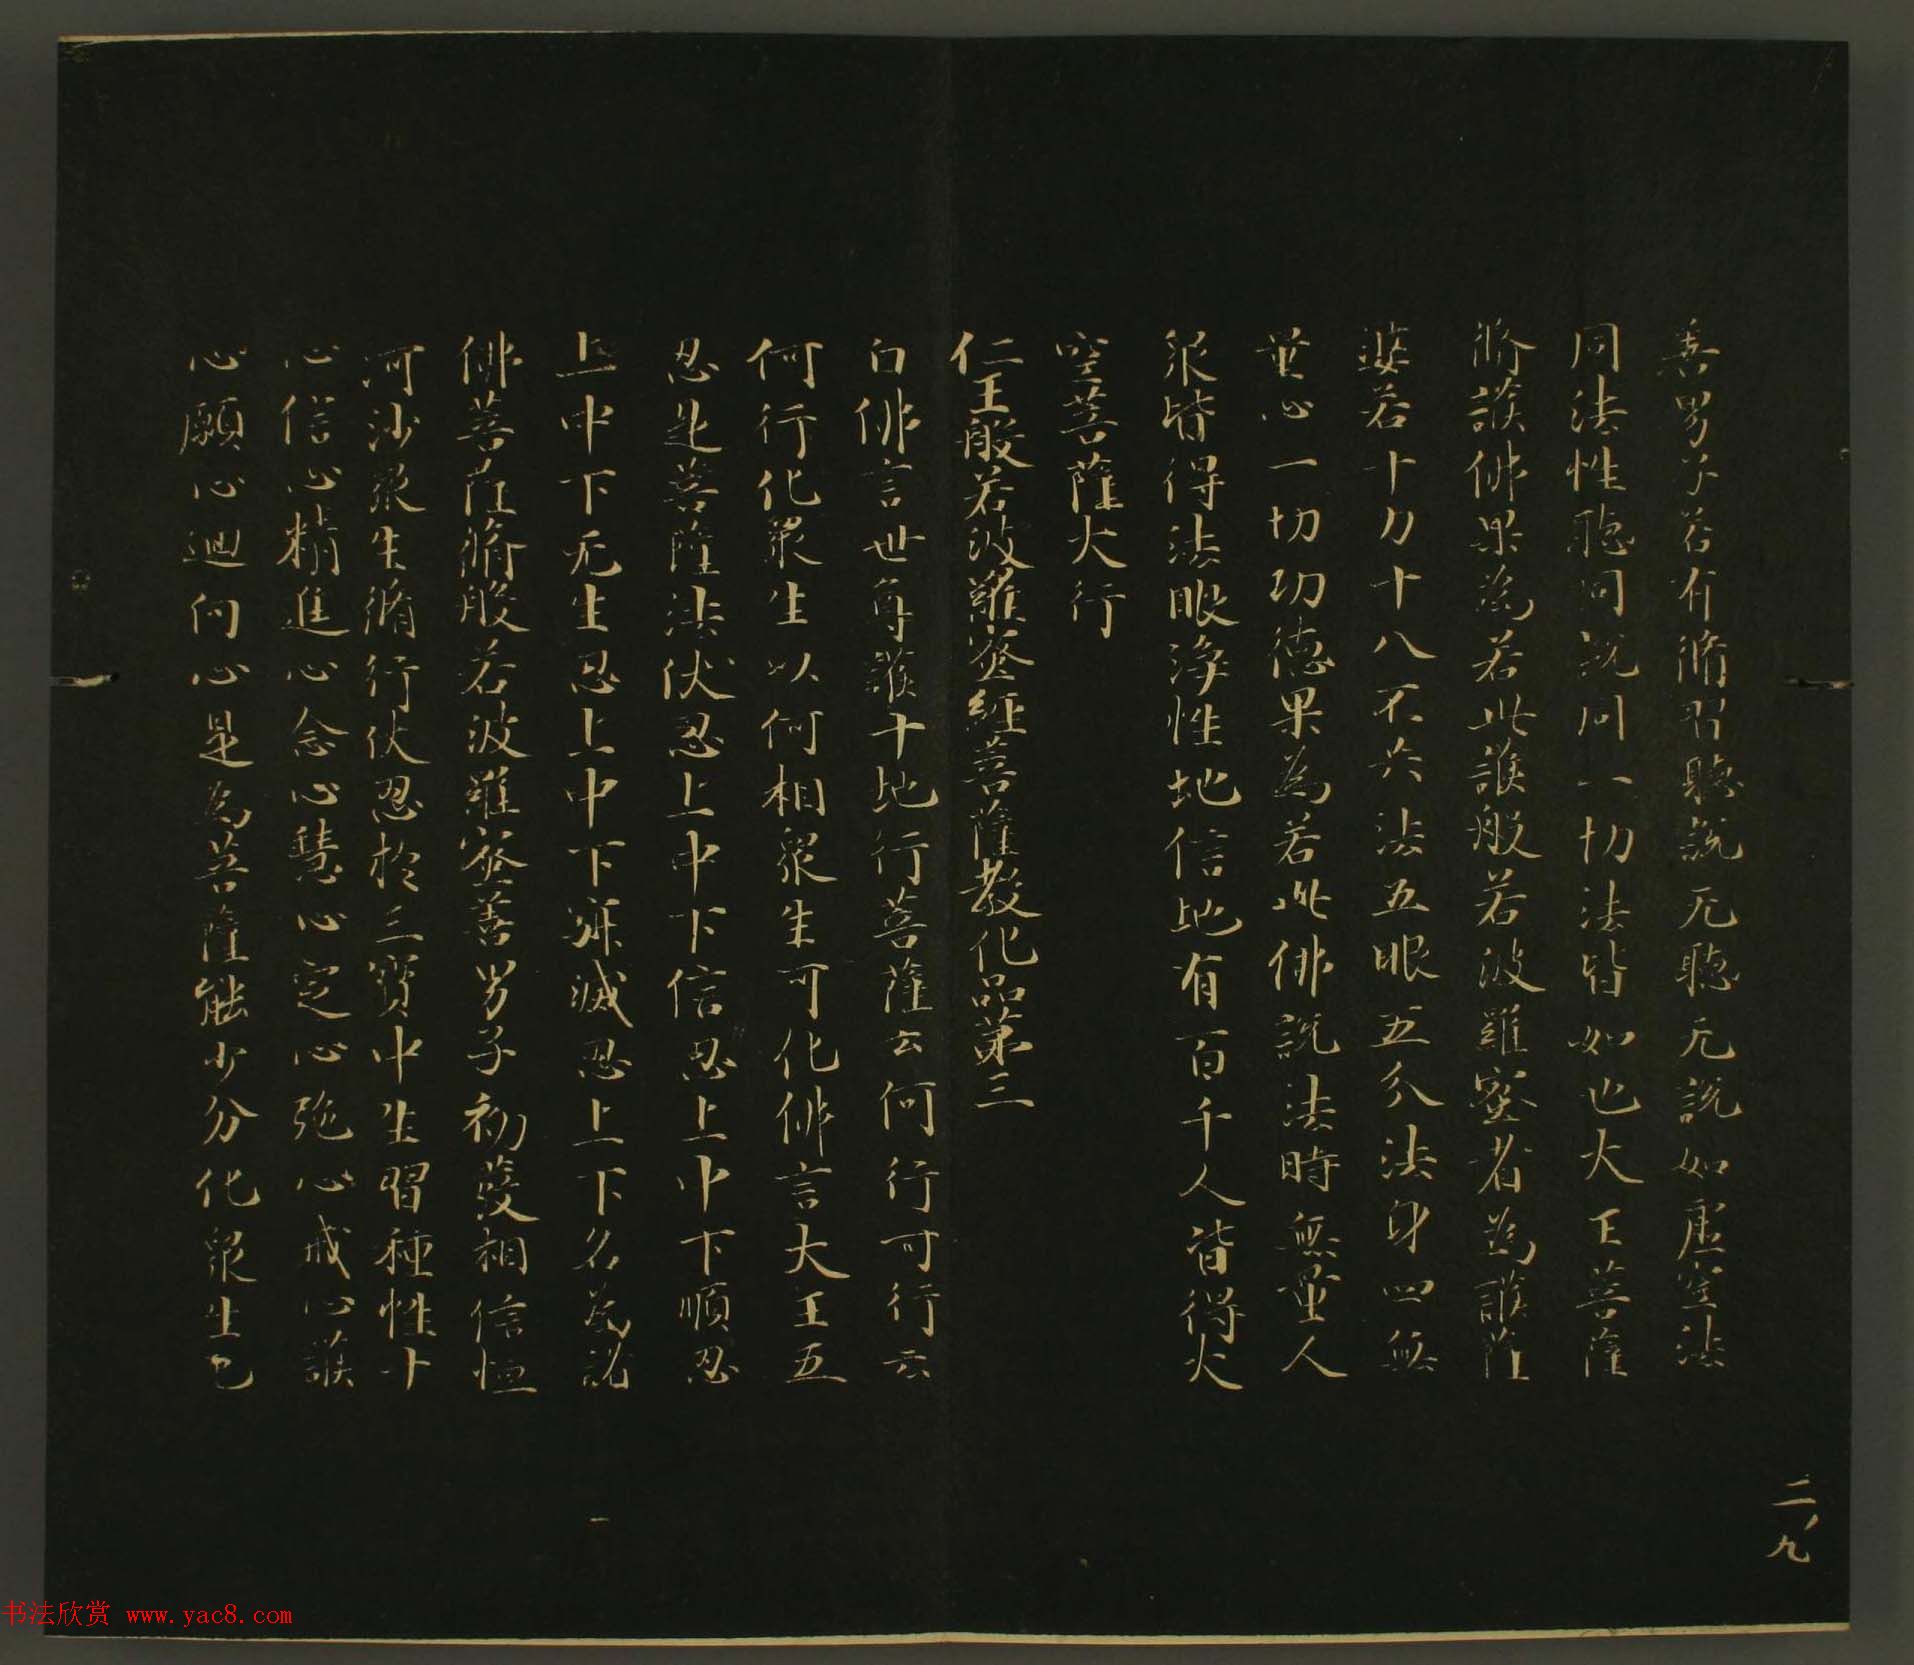 善男子若有脩習聽說无聽无說如虛空法
同法性聽同說同一切法皆如也大王菩薩
脩護佛果為若此護般若波羅蜜者為護薩
婆若十力十八不共法五眼五分法身四無
量心一切功德果為若此佛說法時無量人
眾皆得法眼淨性地信地有百千人皆得大
空菩薩大行
仁王般若波羅蜜經菩薩教化品第三
白佛言世尊護十地行菩薩云何行可行云
何行化眾生以何相眾生可化佛言大王五
忍是菩薩法伏忍上中下信忍上中下順忍
上中下无生忍上中下寂滅忍上下名為諸
佛菩薩脩般若波羅蜜善男子初發相信恒
河沙眾生脩行伏忍於三寶中生習種性十
心信心精進心念心慧心定心施心戒心護
心願心迴向心是為菩薩能少分化眾生已
二九
书法欣赏 www.yac8.com